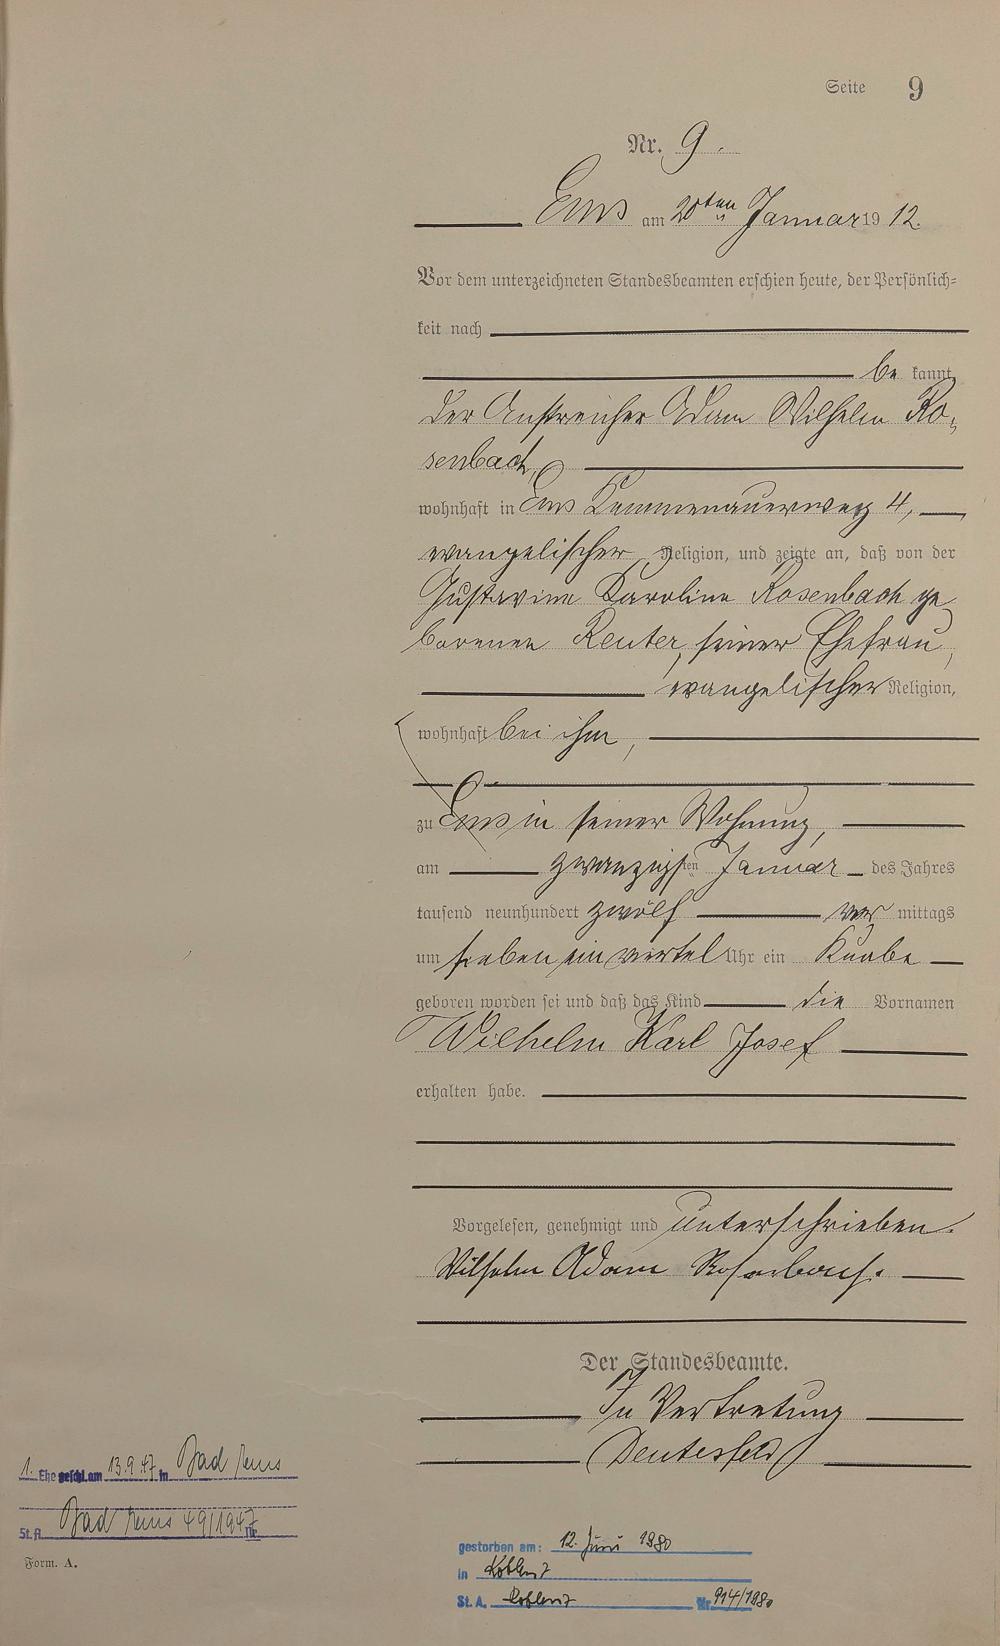 Seite 9
Nr. 9.
Ems am 20ten Januar 1912.
Vor dem unterzeichneten Standesbeamten erschien heute, der Persönlich-
keit nach
be kannt,
der Anstreicher Adam Wilhelm Ro-
senbach,
wohnhaft in Ems Kemmenauerweg 4,
evangelischer Religion, und zeigte an, daß von der
Gustavine Karoline Rosenbach ge
borenen Reuter, seiner Ehefrau,
evangelischer Religion,
wohnhaft bei ihm,
zu Ems in seiner Wohnung,
am zwanzigsten Januar des Jahres
tausend neunhundert zwölf vor mittags
um sieben ein viertel Uhr ein Knabe
geboren worden sei und daß das Kind die Vornamen
Wilhelm Karl Josef
erhalten habe.
Vorgelesen, genehmigt und unterschrieben.
Wilhelm Adam Rosenbach.
Der Standesbeamte.
In Vertretung
Deutesfeld
1. Ehe geschl. am 13.9.47 in Bad Ems
St.A. Bad Ems 49/1947 Nr.
Form. A.
gestorben am: 12. Juni 1980
in Koblenz
St. A. Koblenz Nr. 914/1980